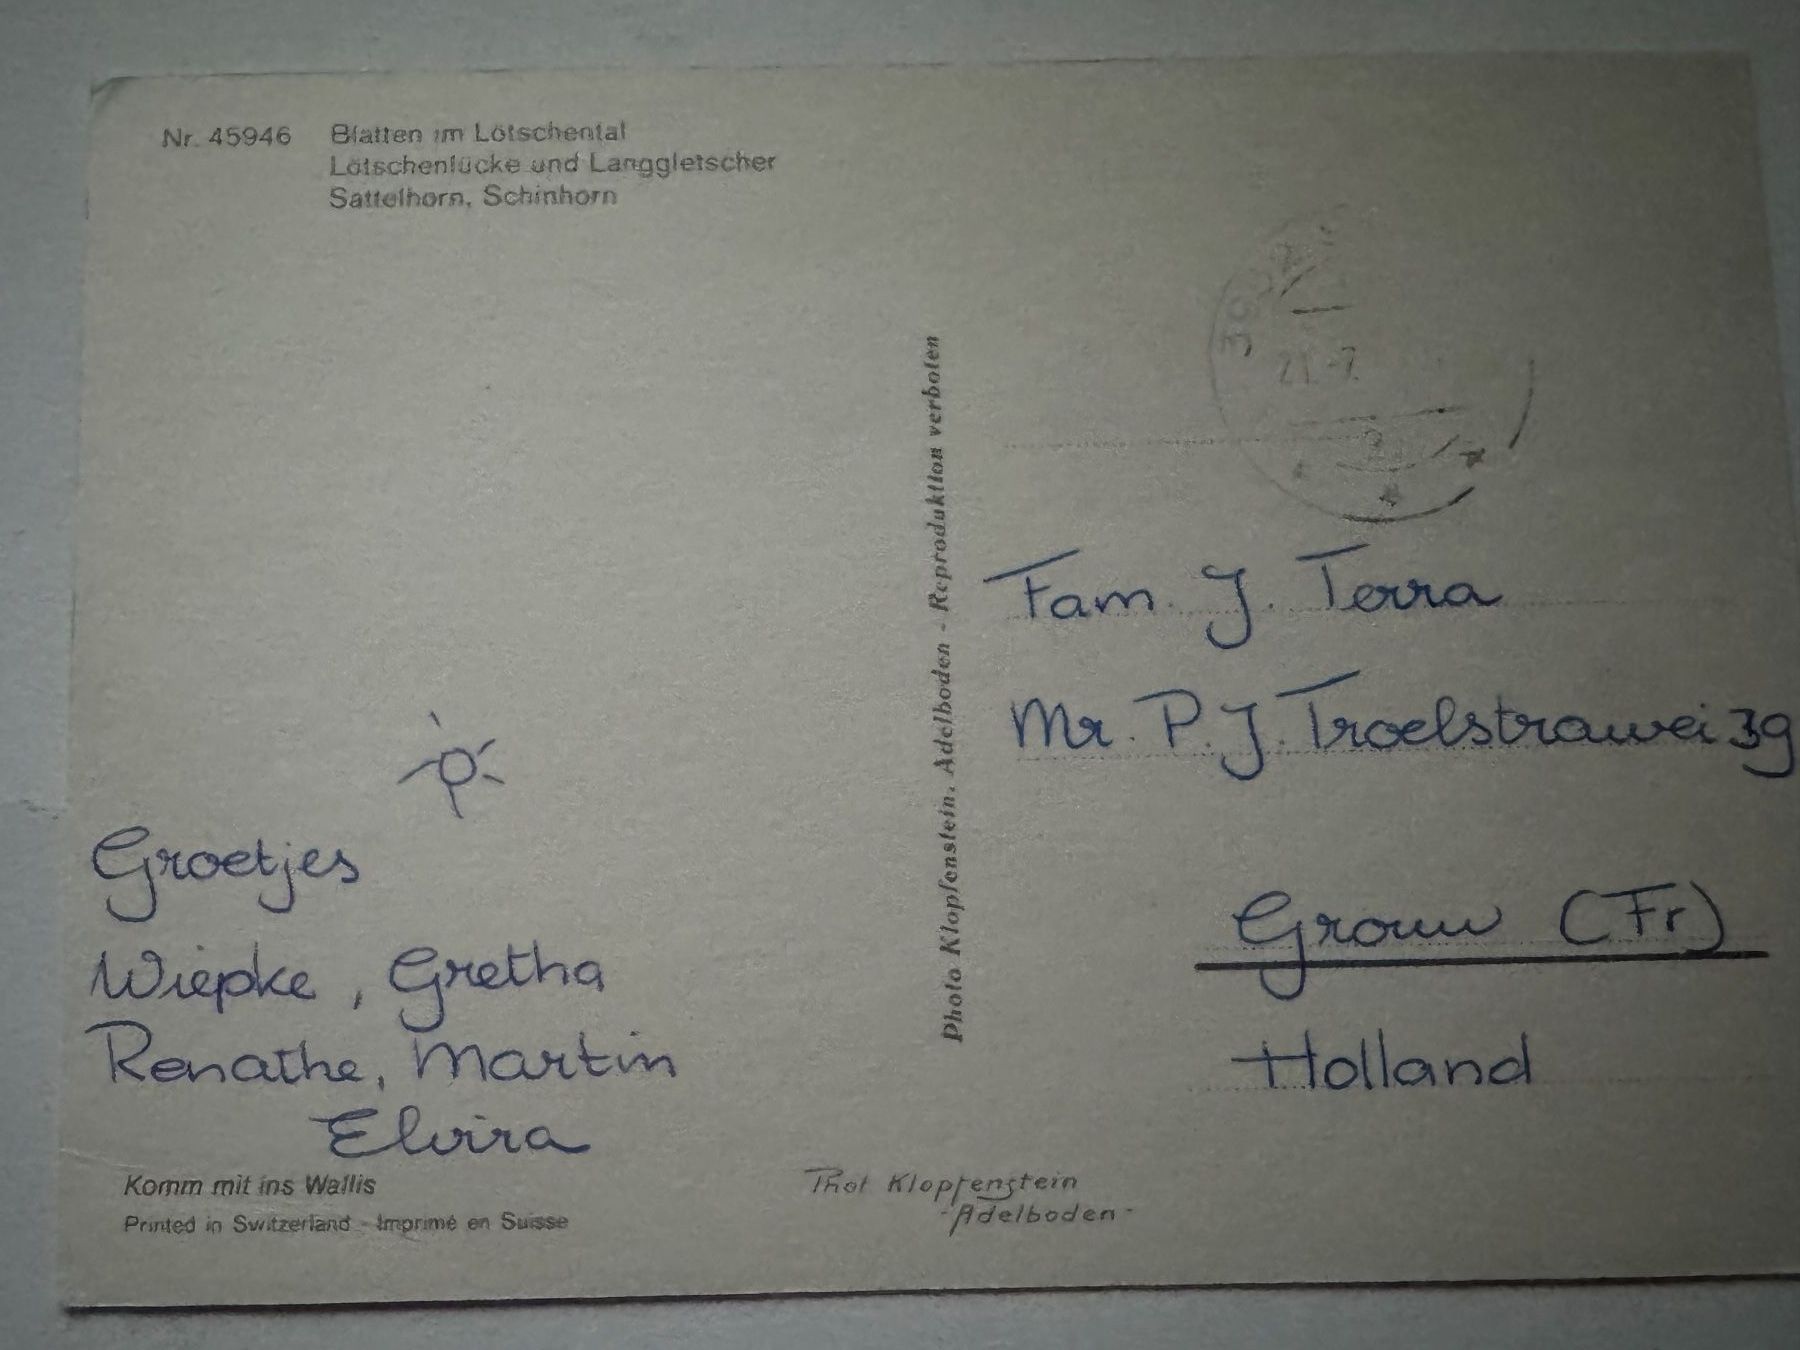 Nr. 45946 Blatten im Lötschental
Lötschenlücke und Langgletscher
Sattelhorn, Schinhorn
Groetjes
Wiepke, Gretha
Renathe, Martin
Elvira
Komm mit ins Wallis
Printed in Switzerland - Imprimé en Suisse
Photo Klopfenstein, Adelboden - Reproduktion verboten
Phot Klopfenstein
-Adelboden-
21.-7.
Fam. J. Terra
Mr. P.J. Troelstrawei 39
Grouw (Fr)
Holland